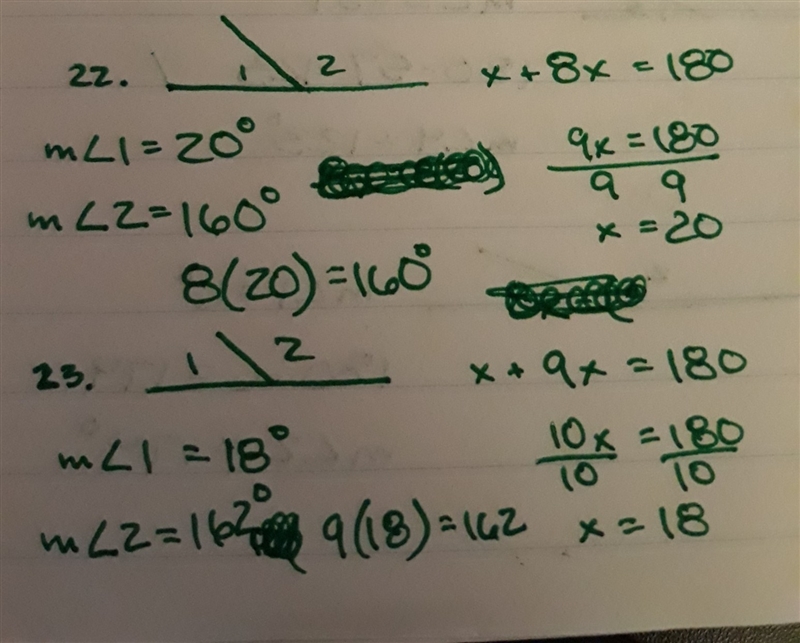 22. 1 2 x + 8x = 180
m∠1 = 20° 9x = 180
9 9
m∠2 = 160° x = 20
8(20) = 160°
23. 1 2 x + 9x = 180
m∠1 = 18° 10x = 180
10 10
m∠2 = 162° 9(18) = 162 x = 18